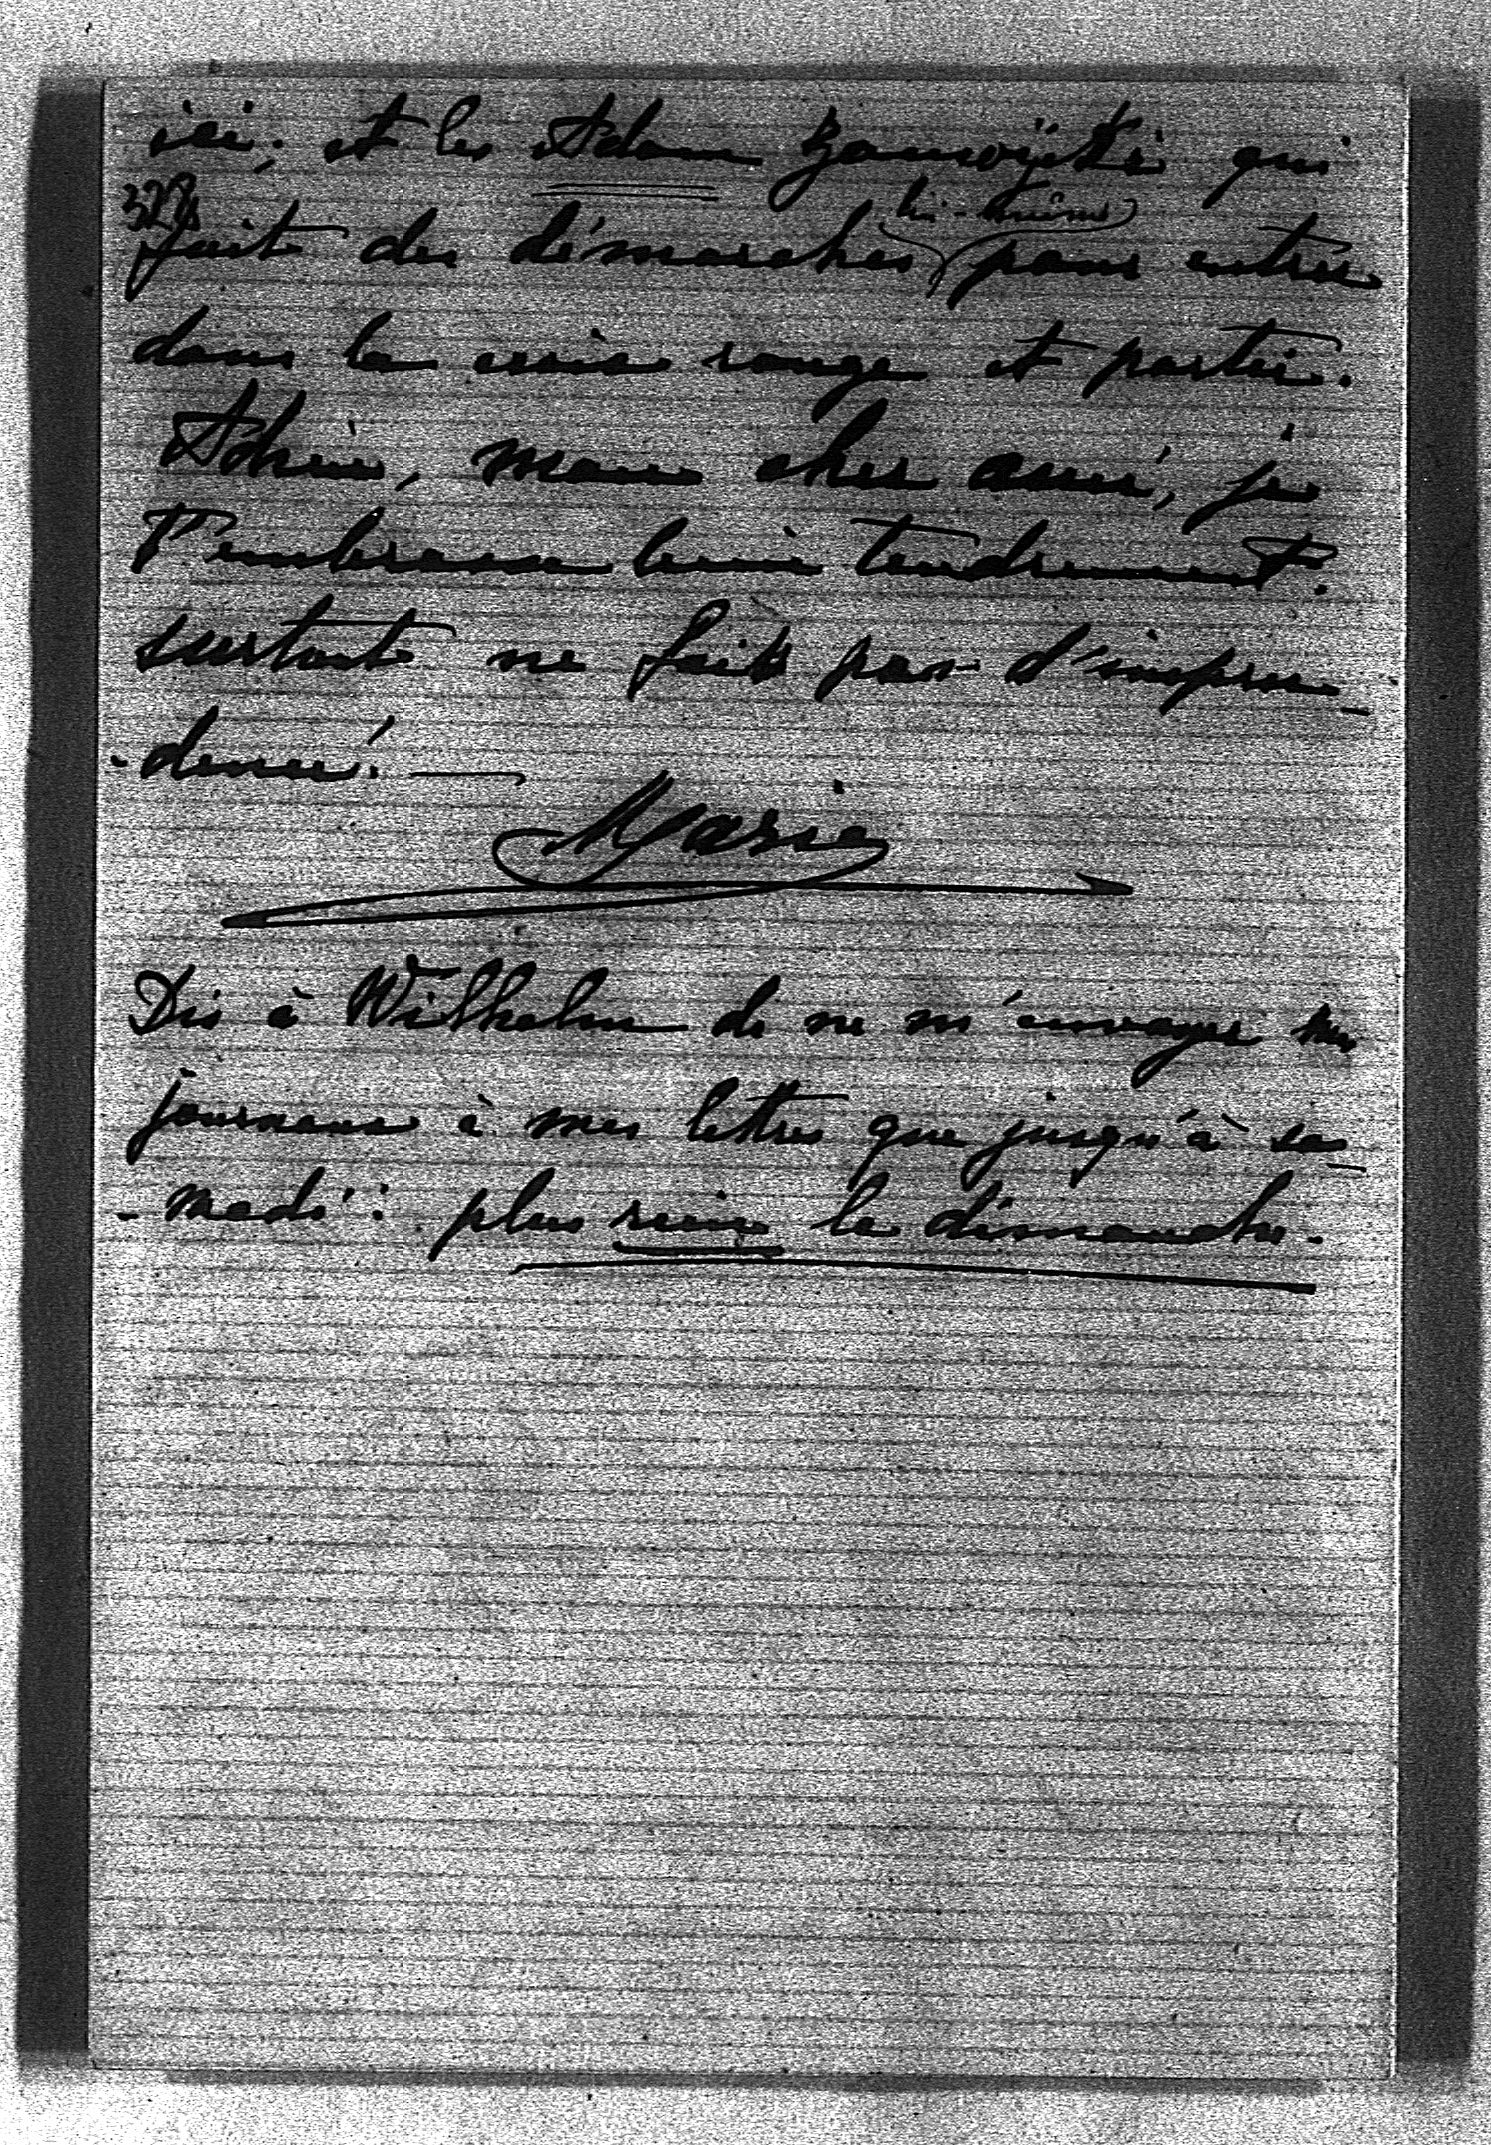 ici; et les Adam Zamoÿski qui
328
fait des démarches lui-même pour entrer
dans la croix rouge et partir.
Adieu, mon cher aimé, je
t'embrasse bien tendrement.
surtout ne fais pas d'impru-
-dence! —
Marie
Dis à Wilhelm de ne m'envoyer mes
journaux à mes lettres que jusqu'à sa-
-medi: plus rien le dimanche.